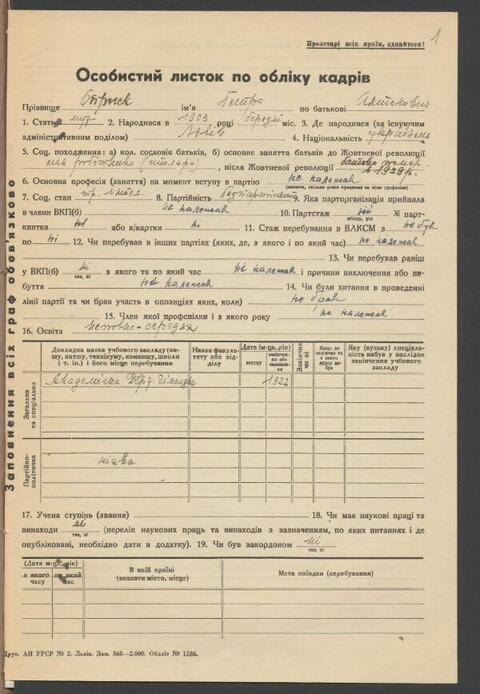 1
Пролетарі всіх країн, єднайтеся!
Особистий листок по обліку кадрів
Прізвище Отриск ім'я Петро по батькові
1. Стать муз 2. Народився в 1903 році березні міс. 3. Де народився (за існуючим
адміністративним поділом) Львів 4. Національність українець
5. Соц. походження: а) кол. сословіє батьків, б) основне заняття батьків до Жовтневої революції
син робітника, після Жовтневої революції батько помер
в 1929 р.
6. Основна професія (заняття) на момент вступу в партію не належав
7. Соц. стан 8. Партійність безпартійний 9. Яка парторганізація прийняла
в члени ВКП(б) не належав 10. Партстаж ні № парт-
квитка ні або к/картки ні 11. Стаж перебування в ВЛКСМ з не був
по ні 12. Чи перебував в інших партіях (яких, де, з якого і по який час) не належав
13. Чи перебував раніш
у ВКП(б) ні з якого та по який час не належав і причини виключення або ви-
буття не належав 14. Чи були хитання в проведенні
лінії партії та чи брав участь в опозиціях яких, коли) не брав
15. Член якої профспілки і з якого року не належав
16. Освіта
Заповнення всіх граф обов'язково
Докладна назва учбового закладу (ви-
шу, втишу, технікуму, комвишу, школи
і т. ін.) і його місце перебування
Назва факуль-
тету або від-
ділу
Дата (м-ць, рік)
вступу
Закінчив
чи ні
Яку (вузьку) спеціаль-
ність набув у наслідок
закінчення учбового
закладу
Загальна
та спеціальна
Академична 1922
Партійно-
політична
нема
17. Учена ступінь (звання) 18. Чи має наукові праці та
винаходи ні (перелік наукових праць та винаходів з зазначенням, по яких питаннях і де
так, ні
опубліковані, необхідно дати в додатку). 19. Чи був закордоном ні
так, ні
(Дата м-ць, рік)
з якого
часу
по який
час
В якій країні
(вказати місто, місце)
Мета поїздки (перебування)
Друк. АН УРСР № 2. Львів. Зам. 368—2.000. Обліліт № 1186.